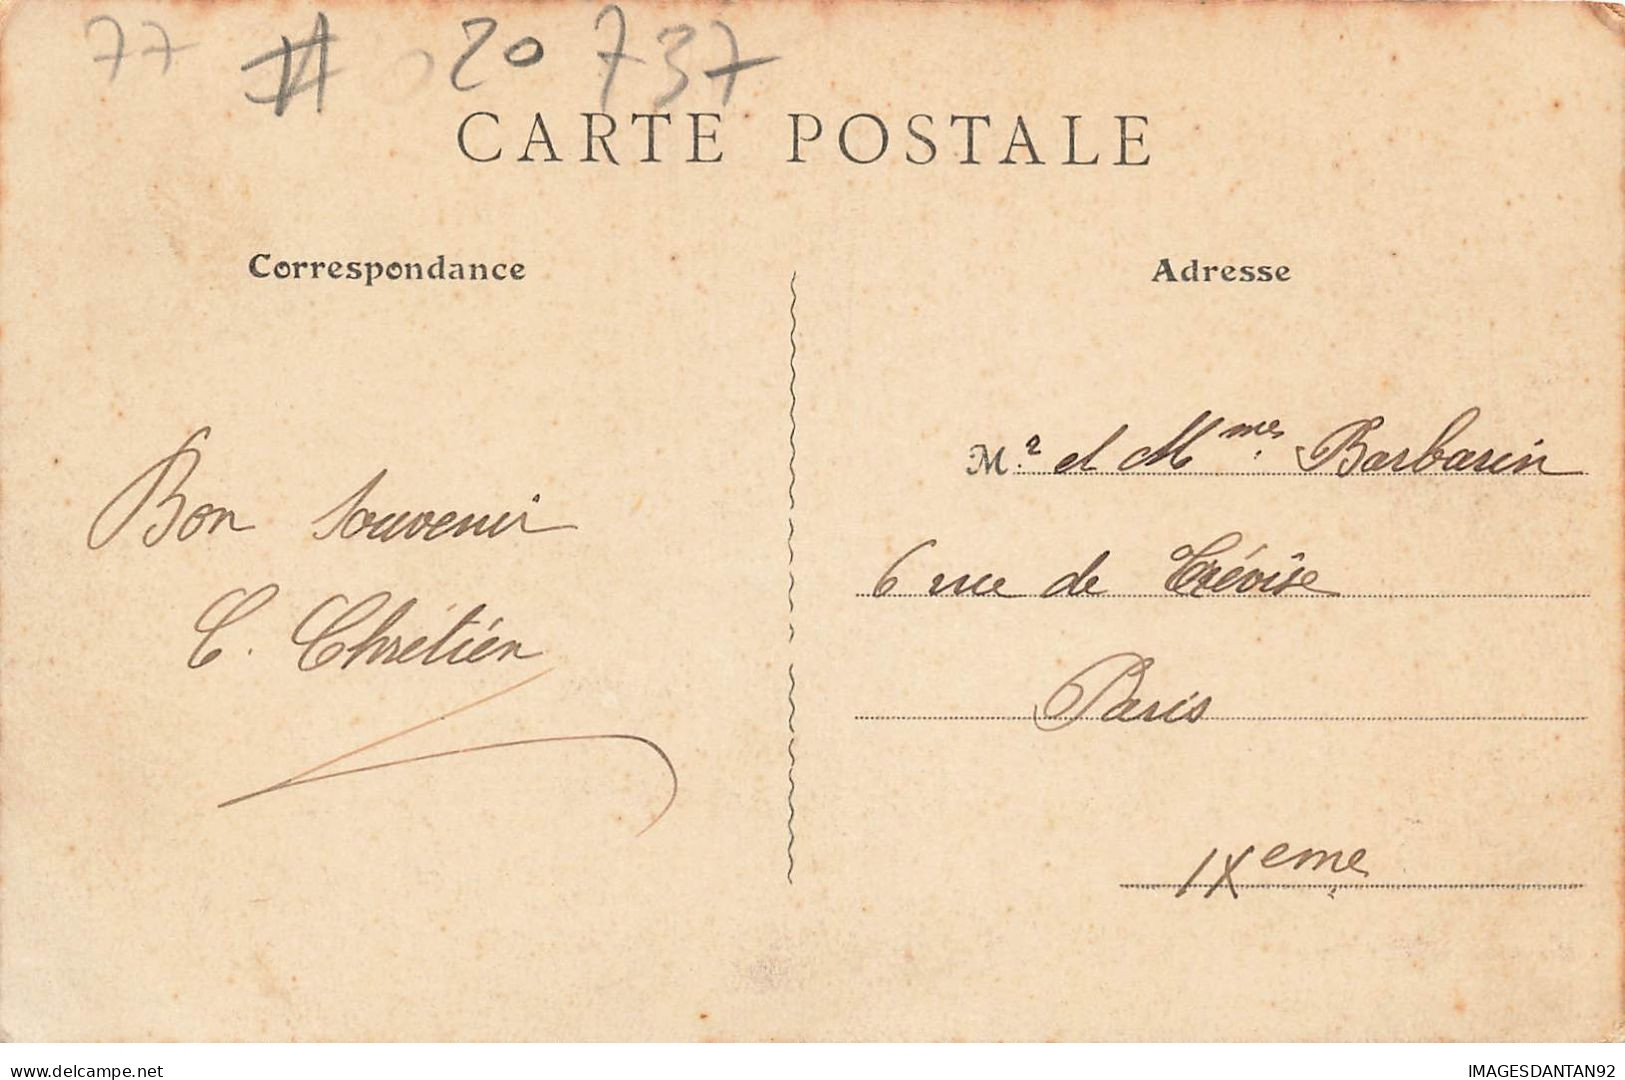 77 # 20 737
CARTE POSTALE
Correspondance
Adresse
Bon souvenir
C. Chrétien
Mr. et Mmes. Barbarin
6 rue de Trévise
Paris
IXeme
www.delcampe.net
IMAGESDANTAN92